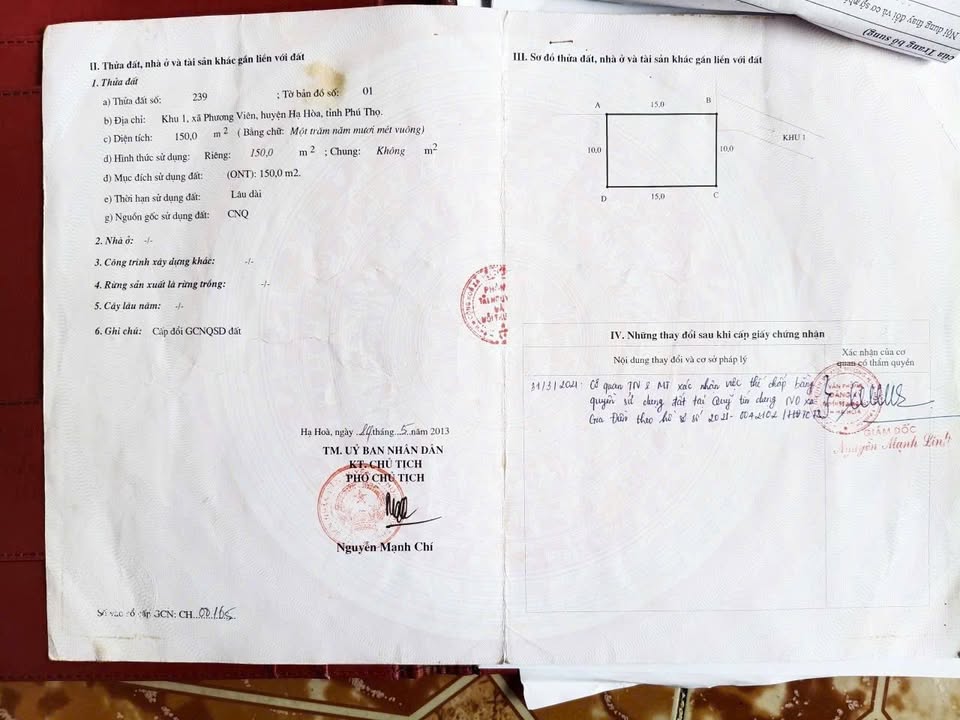 II. Thửa đất, nhà ở và tài sản khác gắn liền với đất
1. Thửa đất
a) Thửa đất số: 239 ; Tờ bản đồ số: 01
b) Địa chỉ: Khu 1, xã Phương Viên, huyện Hạ Hòa, tỉnh Phú Thọ.
c) Diện tích: 150,0 m2 ( Bằng chữ: Một trăm năm mươi mét vuông)
d) Hình thức sử dụng: Riêng: 150,0 m2 ; Chung: Không m2
đ) Mục đích sử dụng đất: (ONT): 150,0 m2.
e) Thời hạn sử dụng đất: Lâu dài
g) Nguồn gốc sử dụng đất: CNQ
2. Nhà ở: -/-
3. Công trình xây dựng khác: -/-
4. Rừng sản xuất là rừng trồng: -/-
5. Cây lâu năm: -/-
6. Ghi chú: Cấp đổi GCNQSD đất
Hạ Hoà, ngày 24 tháng 5 năm 2013
TM. UỶ BAN NHÂN DÂN
KT. CHỦ TỊCH
PHÓ CHỦ TỊCH
Nguyễn Mạnh Chí
Số vào sổ cấp GCN: CH 00165
III. Sơ đồ thửa đất, nhà ở và tài sản khác gắn liền với đất
A 15,0 B
KHU 1
10,0 10,0
D 15,0 C
IV. Những thay đổi sau khi cấp giấy chứng nhận
Nội dung thay đổi và cơ sở pháp lý
Xác nhận của cơ
quan có thẩm quyền
31/3/2021: Cơ quan TN & MT xác nhận việc thế chấp bằng
quyền sử dụng đất tại Quỹ tín dụng ND xã
Gia Điền theo hồ sơ số 2021-
GIÁM ĐỐC
Nguyễn Mạnh Linh
của Trang bổ sung)
Nội dung thay đổi và cơ sở